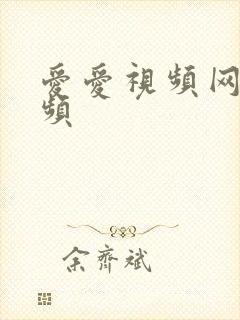 愛愛視頻网
頻
余齊斌